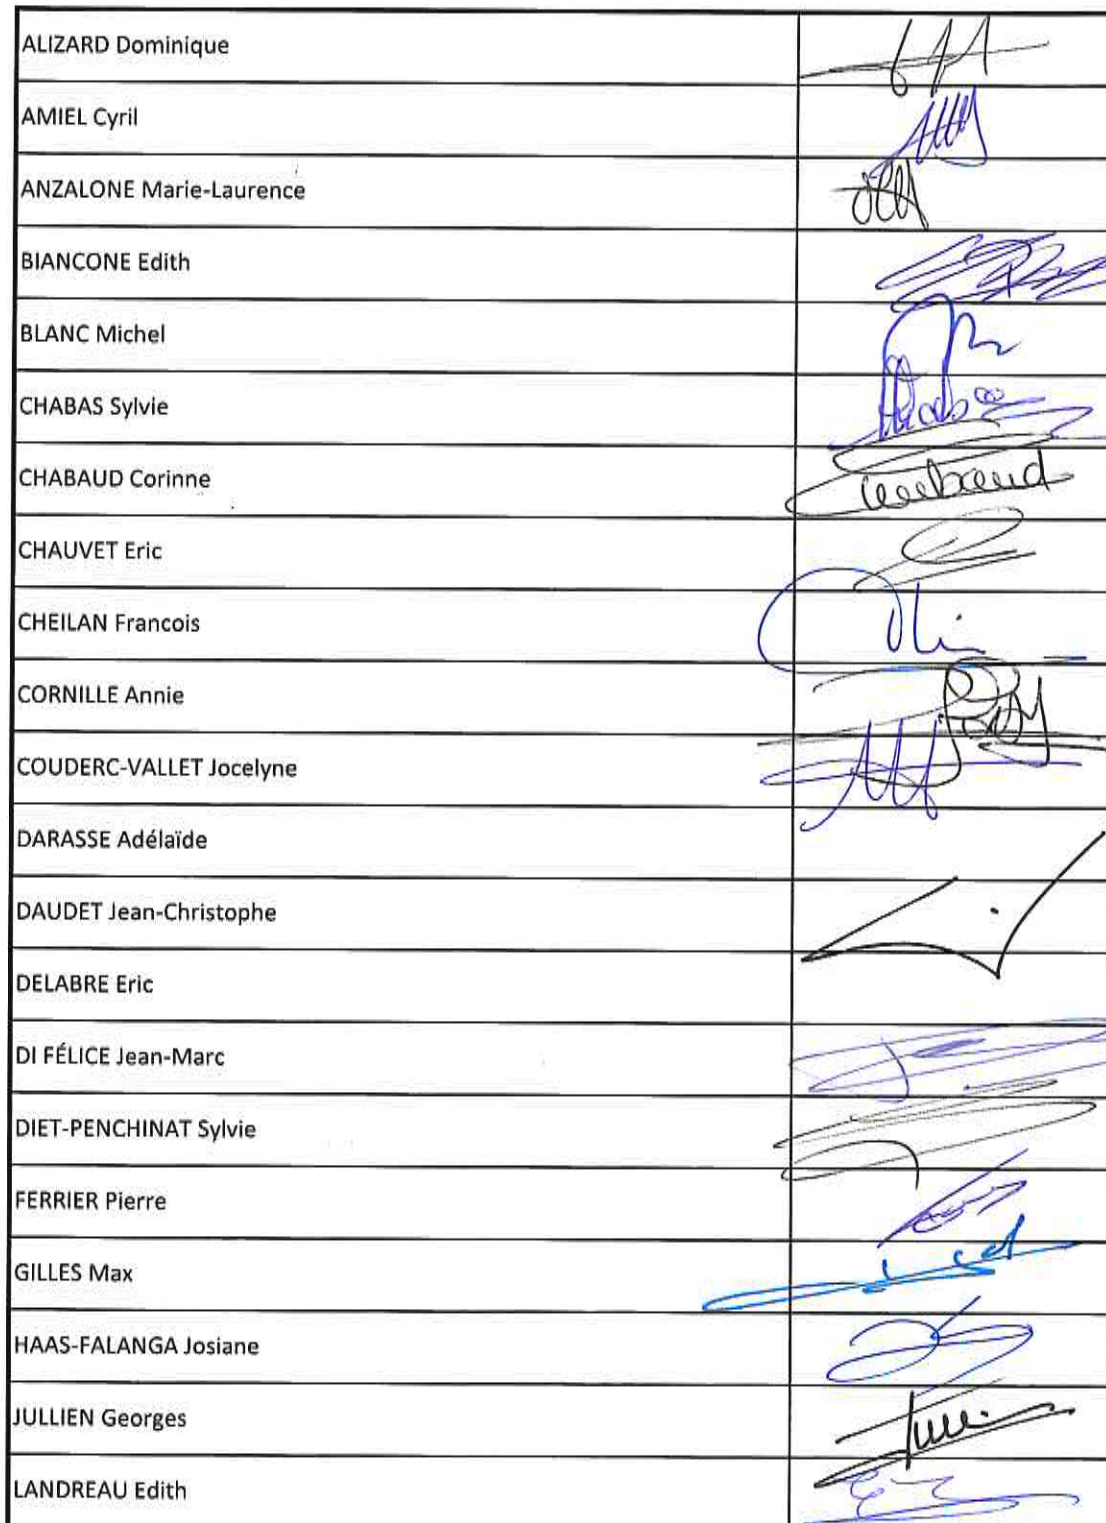 ALIZARD Dominique
AMIEL Cyril
ANZALONE Marie-Laurence
BIANCONE Edith
BLANC Michel
CHABAS Sylvie
CHABAUD Corinne
CHAUVET Eric
CHEILAN Francois
CORNILLE Annie
COUDERC-VALLET Jocelyne
DARASSE Adélaïde
DAUDET Jean-Christophe
DELABRE Eric
DI FÉLICE Jean-Marc
DIET-PENCHINAT Sylvie
FERRIER Pierre
GILLES Max
HAAS-FALANGA Josiane
JULLIEN Georges
LANDREAU Edith